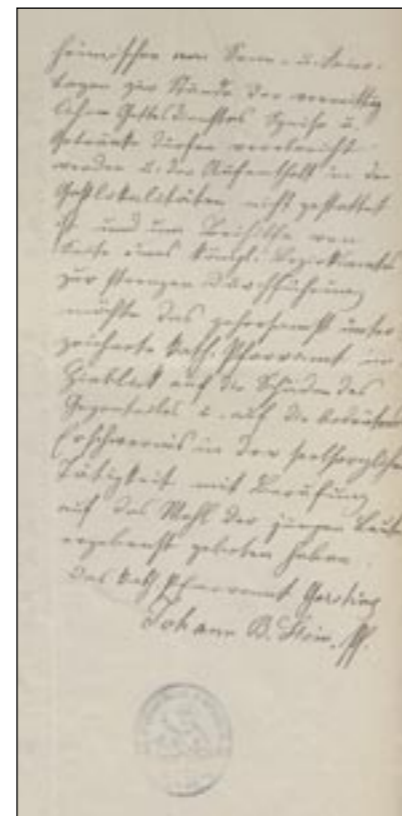 heimischen an Sonn- u. Feier-
tagen zur Stunde des vormittäg
lichen Gottesdienstes Speise u.
Getränke dürfen verabreicht
werden u. der Aufenthalt in den
Gastlokalitäten nicht gestattet
ist und um Beihilfe von
Seite eines Königl. Bezirksamtes
zur strengen Durchführung
möchte das gehorsamst unter
zeichnete kath. Pfarramt im
Hinblick auf die Schäden des
Gegenteiles u. auf die bedeutende
Erschwernis in der seelsorglichen
Tätigkeit mit Berufung
auf das Wohl der jungen Leute
ergebenst gebeten haben.
Das kath. Pfarramt
Johann B. Pf.